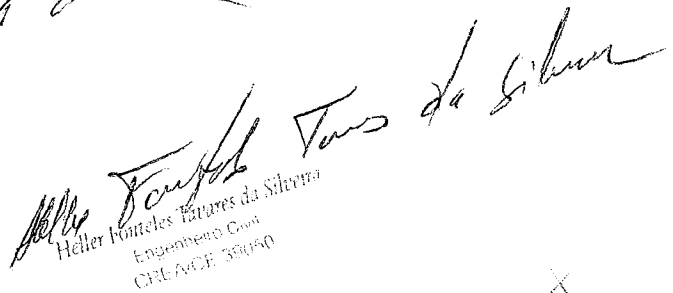 Heller Fonteles Tavares da Silveira
Heller Fonteles Tavares da Silveira
Engenheiro Civil
CREA/CE 39050